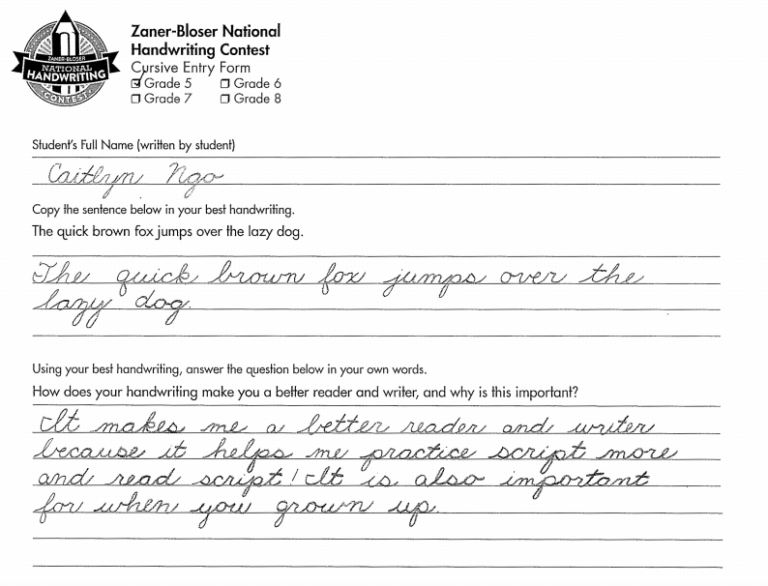 ZANER-BLOSER
NATIONAL
HANDWRITING
CONTEST
Zaner-Bloser National
Handwriting Contest
Cursive Entry Form
Grade 5 Grade 6
Grade 7 Grade 8
Student's Full Name (written by student)
Caitlyn Ngo
Copy the sentence below in your best handwriting.
The quick brown fox jumps over the lazy dog.
The quick brown fox jumps over the
lazy dog.
Using your best handwriting, answer the question below in your own words.
How does your handwriting make you a better reader and writer, and why is this important?
It makes me a better reader and writer
because it helps me practice script more
and read script! It is also important
for when you grown up.